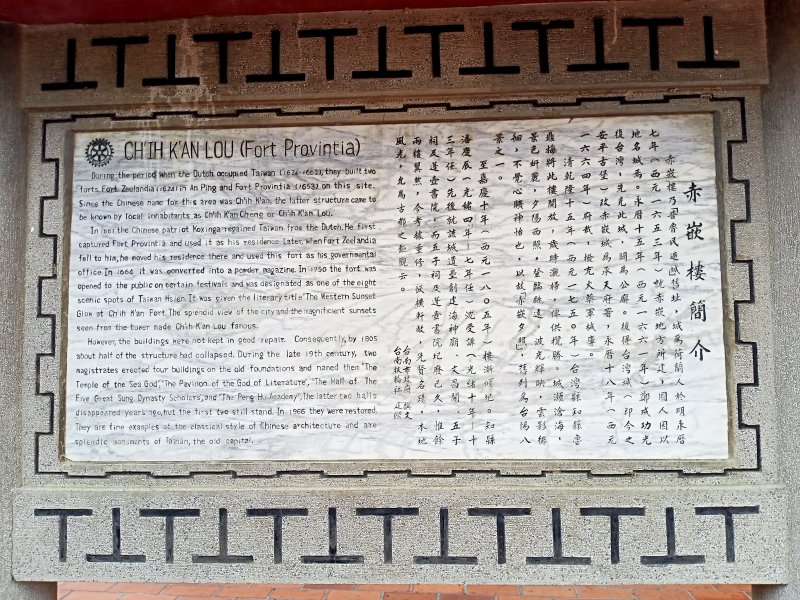 CH'IH K'AN LOU (Fort Provintia)
During the period when the Dutch occupied Taiwan (1624-1662), they built two
forts, Fort Zeelandia (1624) in An Ping and Fort Provintia (1653) on this site.
Since the Chinese name for this area was Ch'ih K'ab, the latter structure came to
be known by local inhabitants as Ch'ih K'an Cheng or Ch'ih K'an Lou.
In 1661 the Chinese patriot Koxinga regained Taiwan from the Dutch. He first
captured Fort Provintia and used it as his residence. Later, when Fort Zeelandia
fell to him, he moved his residence there and used this fort as his governmental
office. In 1664 it was converted into a powder magazine. In 1750 the fort was
opened to the public on certain festivals and was designated as one of the eight
scenic spots of Taiwan Hsien. It was given the literary title "The Western Sunset
Glow at Ch'ih K'an Fort. The splendid view of the city and the magnificent sunsets
seen from the tower made Ch'ih-K'an Lou famous.
However, the buildings were not kept in good repair. Consequently, by 1805
about half of the structure had collapsed. During the late 19th century, two
magistrates erected four buildings on the old foundations and named them "The
Temple of the Sea God", "The Pavilion of the God of Literature", "The Hall of The
Five Great Sung Dynasty Scholars, and "The Peng Hu Academy". The latter two halls
disappeared years ago, but the first two still stand. In 1966 they were restored.
They are fine examples of the classical style of Chinese architecture and are
splendid monuments of Tainan, the old capital.
赤嵌樓簡介
赤嵌樓乃番民遊憩舊址,城為荷蘭人於明永曆
七年(西元一六五三年)就赤嵌地方所建,國人因以
地名城焉。永曆十五年(西元一六六一年)鄭成功光
復台灣,先克此城,闢為公廨。後得台灣城(即今之
安平古堡)改赤嵌城為承天府署,永曆十八年(西元
一六六四年)府裁,撥充火藥軍械庫。
清乾隆十五年(西元一七五0年)台灣縣知縣魯
鼎梅將此樓開放,歲時灑掃,俾供攬勝。城瀕滄海,
景色妍麗,夕陽西照,登臨眺遠,波光輝映,雲影徘
徊,不覺心曠神怡也,以故赤嵌夕照,舊列為台陽八
景之一。
至嘉慶十年(西元一八0五年)樓漸傾圮。知縣
潘慶辰(光緒四年—七年任)沈受謙(光緒十年—十
三年任)先後就該城遺壘創建海神廟、文昌閣、五子
祠及蓬壺書院。而五子祠及蓬壺書院圮廢已久,惟餘
兩樓翼然,今考據重修,恢樓軒敞,先賢名蹟,本地
風光,允為古都之鉅觀云。
台南市政府 撰文
台南扶輪社 建贈